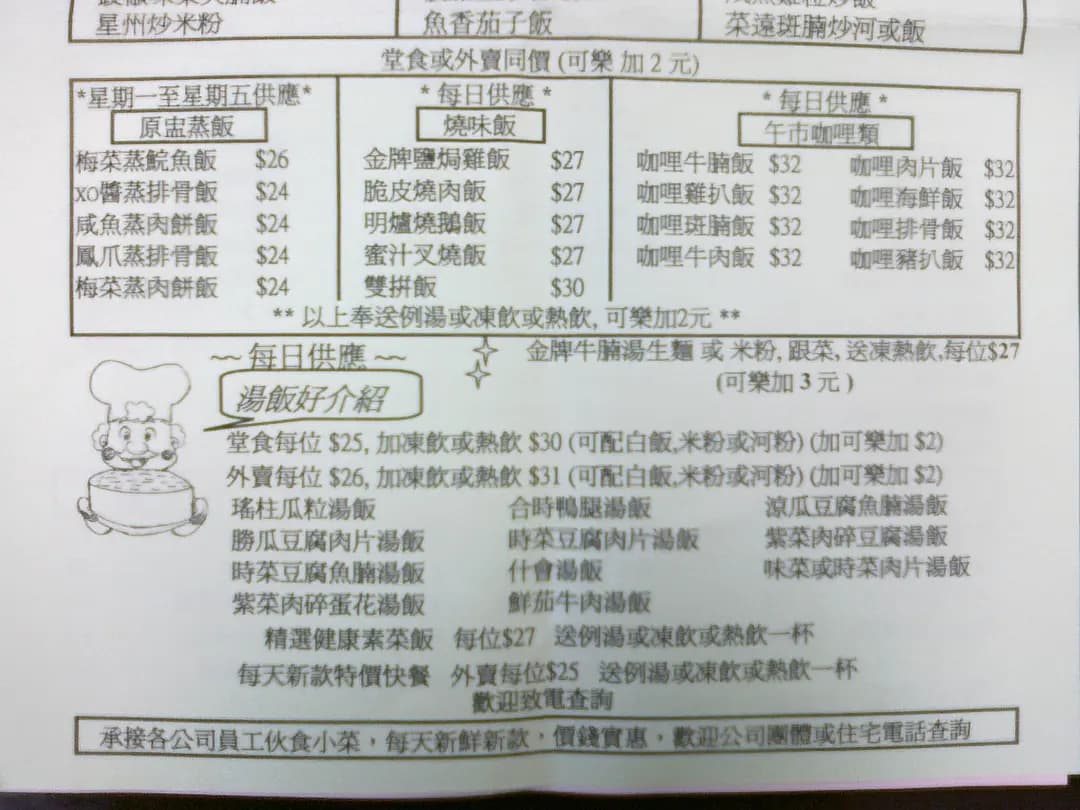 星州炒米粉 魚香茄子飯 菜遠斑腩炒河或飯
堂食或外賣同價 (可樂 加 2 元)
*星期一至星期五供應*
原盅蒸飯
梅菜蒸鯇魚飯 $26
XO醬蒸排骨飯 $24
咸魚蒸肉餅飯 $24
鳳爪蒸排骨飯 $24
梅菜蒸肉餅飯 $24
* 每日供應 *
燒味飯
金牌鹽焗雞飯 $27
脆皮燒肉飯 $27
明爐燒鵝飯 $27
蜜汁叉燒飯 $27
雙拼飯 $30
* 每日供應 *
午市咖哩類
咖哩牛腩飯 $32 咖哩肉片飯 $32
咖哩雞扒飯 $32 咖哩海鮮飯 $32
咖哩斑腩飯 $32 咖哩排骨飯 $32
咖哩牛肉飯 $32 咖哩豬扒飯 $32
** 以上奉送例湯或凍飲或熱飲, 可樂加2元 **
金牌牛腩湯生麵 或 米粉, 跟菜, 送凍熱飲,每位$27
(可樂加 3 元 )
~~ 每日供應 ~~
湯飯好介紹
堂食每位 $25, 加凍飲或熱飲 $30 (可配白飯,米粉或河粉) (加可樂加 $2)
外賣每位 $26, 加凍飲或熱飲 $31 (可配白飯,米粉或河粉) (加可樂加 $2)
瑤柱瓜粒湯飯 合時鴨腿湯飯 涼瓜豆腐魚腩湯飯
勝瓜豆腐肉片湯飯 時菜豆腐肉片湯飯 紫菜肉碎豆腐湯飯
時菜豆腐魚腩湯飯 什會湯飯 味菜或時菜肉片湯飯
紫菜肉碎蛋花湯飯 鮮茄牛肉湯飯
精選健康素菜飯 每位$27 送例湯或凍飲或熱飲一杯
每天新款特價快餐 外賣每位$25 送例湯或凍飲或熱飲一杯
歡迎致電查詢
承接各公司員工伙食小菜，每天新鮮新款，價錢實惠，歡迎公司團體或住宅電話查詢